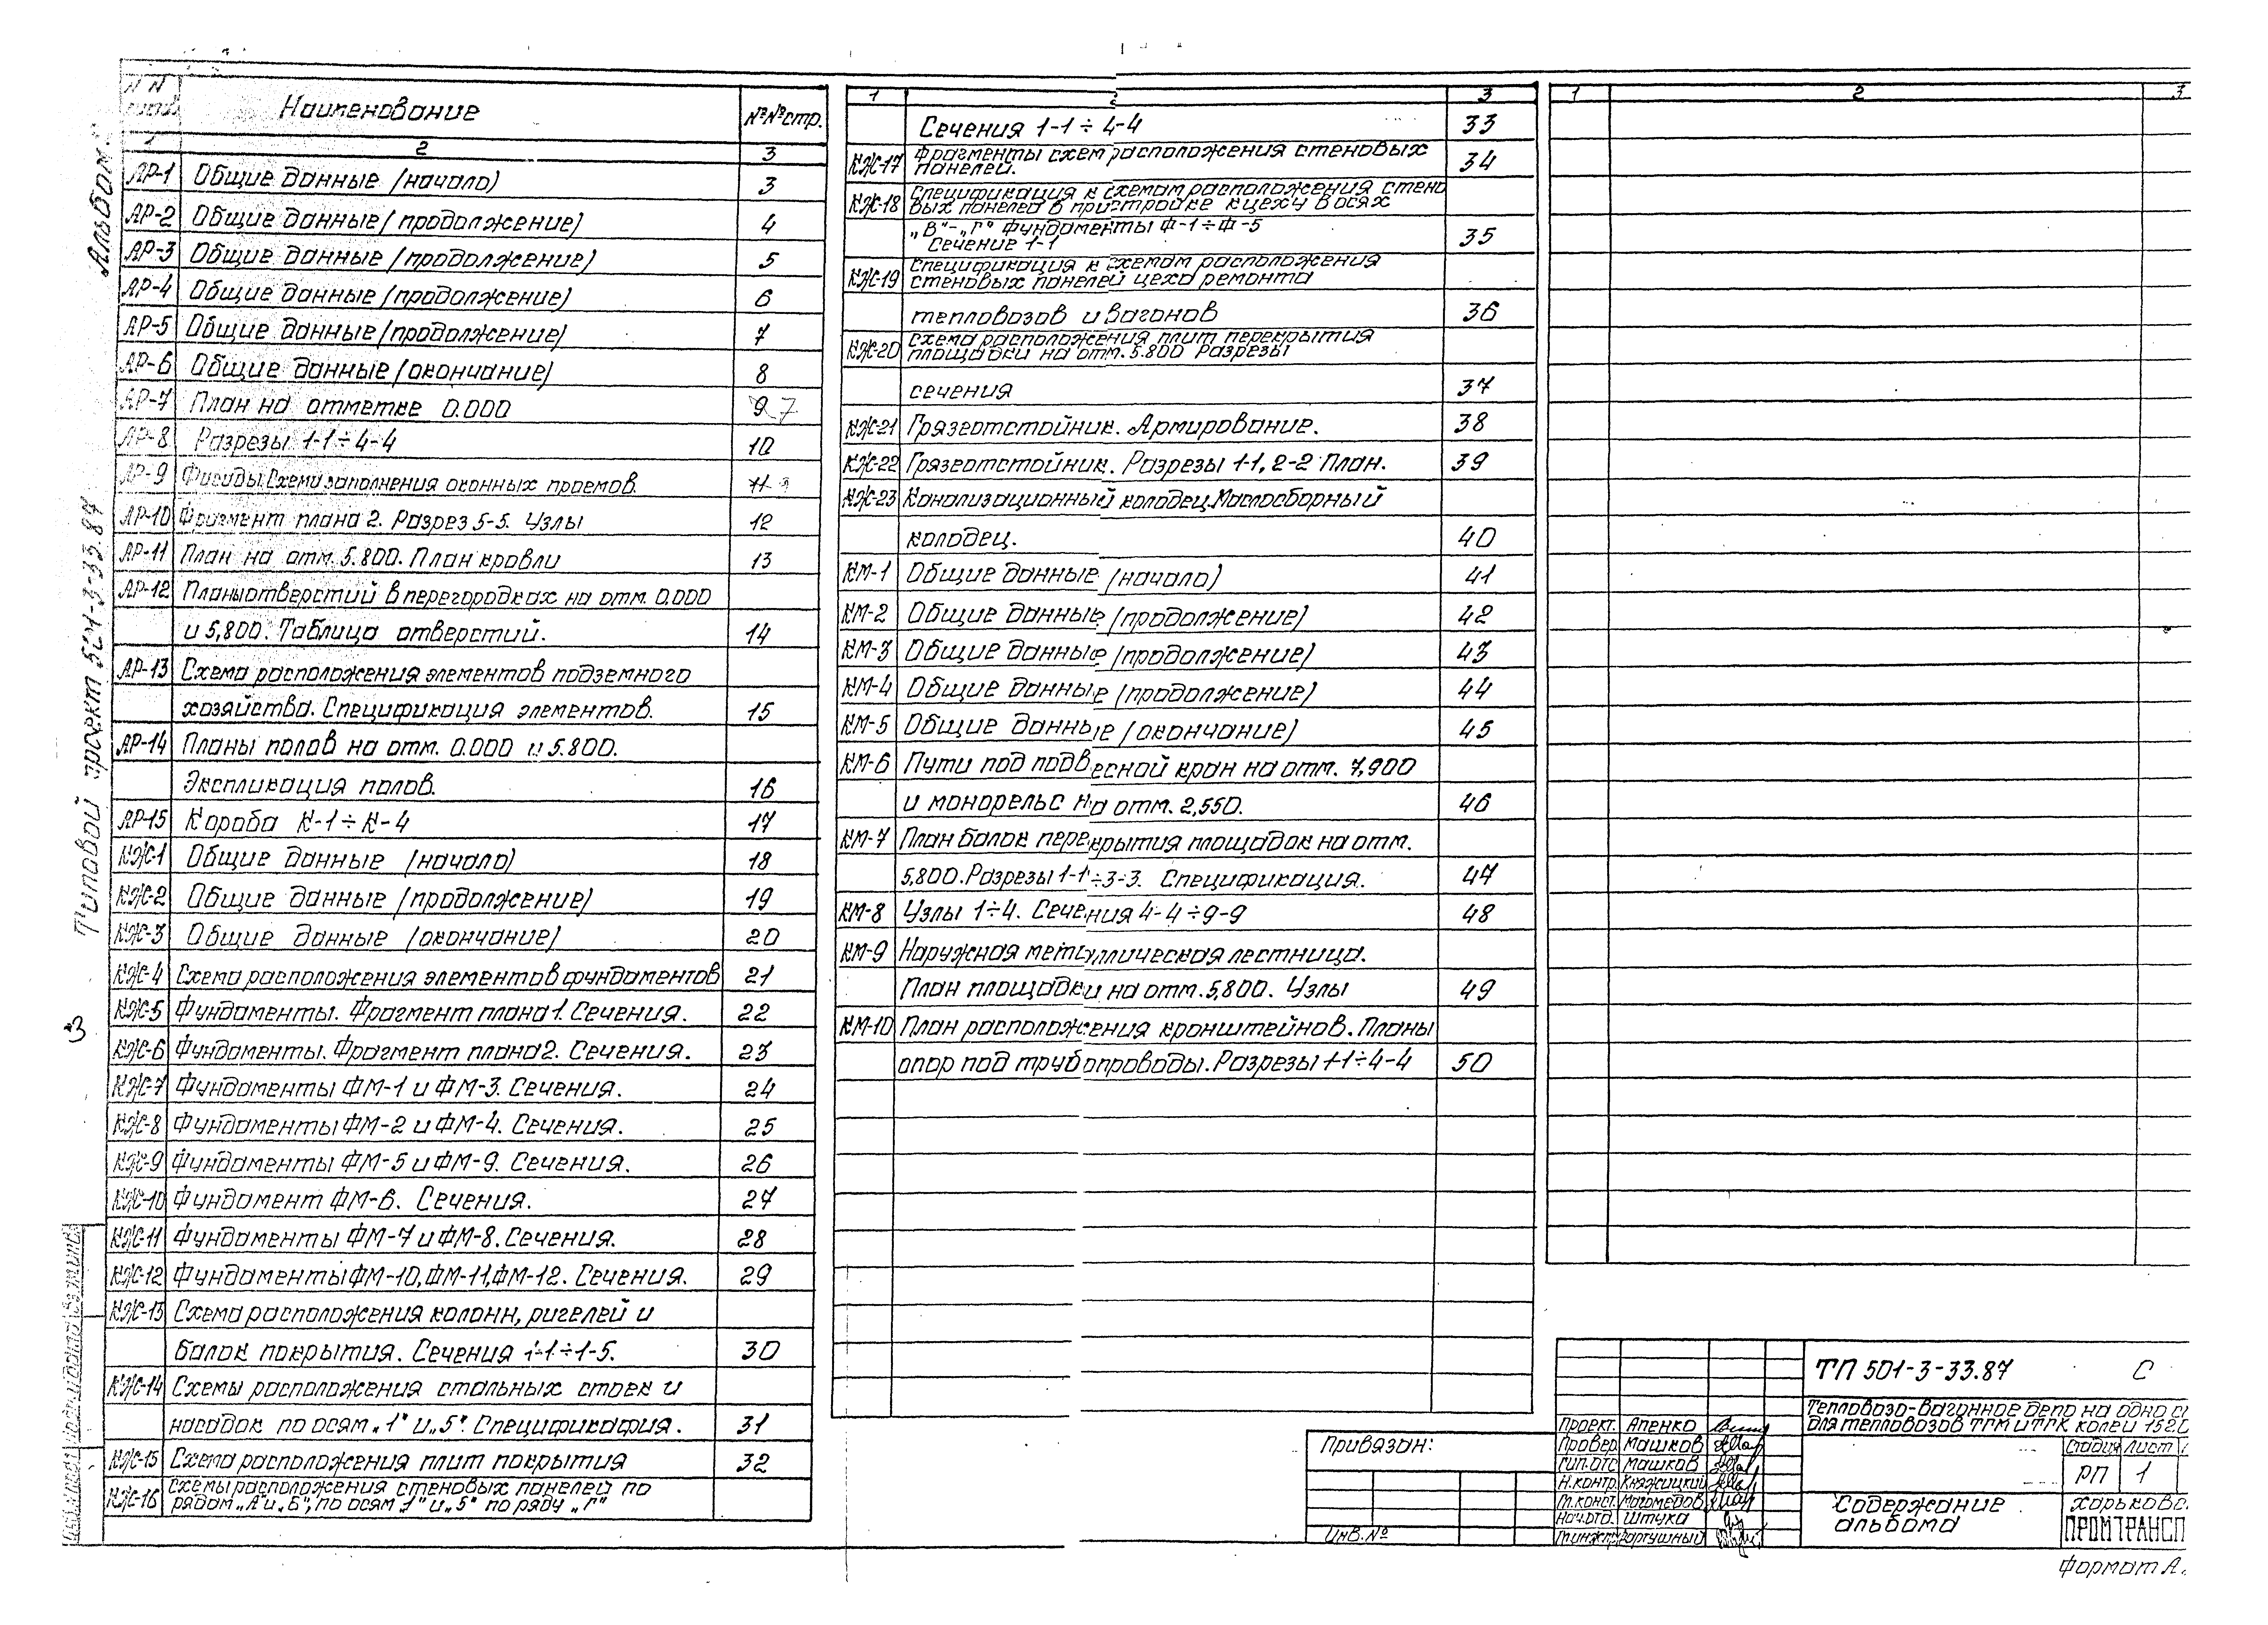 Альбом
Типовой проект 501-3-33.87
3
Наименование
№№стр.
1 2 3
АР-1 Общие данные (начало) 3
АР-2 Общие данные (продолжение) 4
АР-3 Общие данные (продолжение) 5
АР-4 Общие данные (продолжение) 6
АР-5 Общие данные (продолжение) 7
АР-6 Общие данные (окончание) 8
АР-7 План на отметке 0.000 9
АР-8 Разрезы 1-1÷4-4 10
АР-9 Фасады. Схема заполнения оконных проемов. 11
АР-10 Фрагмент плана 2. Разрез 5-5. Узлы 12
АР-11 План на отм. 5.800. План кровли 13
АР-12 Планы отверстий в перегородках на отм. 0.000
и 5,800. Таблица отверстий. 14
АР-13 Схема расположения элементов подземного
хозяйства. Спецификация элементов. 15
АР-14 Планы полов на отм. 0.000 и 5.800.
Экспликация полов. 16
АР-15 Короба К-1÷К-4 17
КЖ-1 Общие данные (начало) 18
КЖ-2 Общие данные (продолжение) 19
КЖ-3 Общие данные (окончание) 20
КЖ-4 Схема расположения элементов фундаментов 21
КЖ-5 Фундаменты. Фрагмент плана 1. Сечения. 22
КЖ-6 Фундаменты. Фрагмент плана 2. Сечения. 23
КЖ-7 Фундаменты ФМ-1 и ФМ-3. Сечения. 24
КЖ-8 Фундаменты ФМ-2 и ФМ-4. Сечения. 25
КЖ-9 Фундаменты ФМ-5 и ФМ-9. Сечения. 26
КЖ-10 Фундамент ФМ-6. Сечения. 27
КЖ-11 Фундаменты ФМ-7 и ФМ-8. Сечения. 28
КЖ-12 Фундаменты ФМ-10, ФМ-11, ФМ-12. Сечения. 29
КЖ-13 Схема расположения колонн, ригелей и
балок покрытия. Сечения 1-1÷1-5. 30
КЖ-14 Схемы расположения стальных стоек и
насадок по осям „1" и „5". Спецификафия. 31
КЖ-15 Схема расположения плит покрытия 32
КЖ-16 Схемы расположения стеновых панелей по
рядам „А" и „Б", по осям „1" и „5" по ряду „Г"
1 2 3
Сечения 1-1÷4-4 33
КЖ-17 Фрагменты схем расположения стеновых
панелей. 34
КЖ-18 Спецификация к схемам расположения стено
вых панелей в пристройке к цеху в осях
„В"-„Г" Фундаменты Ф-1÷Ф-5
Сечение 1-1 35
КЖ-19 Спецификация к схемам расположения
стеновых панелей цеха ремонта
тепловозов и вагонов 36
КЖ-20 Схема расположения плит перекрытия
площадки на отм. 5.800 Разрезы
сечения 37
КЖ-21 Грязеотстойник. Армирование. 38
КЖ-22 Грязеотстойник. Разрезы 1-1, 2-2 План. 39
КЖ-23 Канализационный колодец. Маслосборный
колодец. 40
КМ-1 Общие данные (начало) 41
КМ-2 Общие данные (продолжение) 42
КМ-3 Общие данные (продолжение) 43
КМ-4 Общие данные (продолжение) 44
КМ-5 Общие данные (окончание) 45
КМ-6 Пути под подвесной кран на отм. 7,900
и монорельс на отм. 2,550. 46
КМ-7 План балок перекрытия площадок на отм.
5,800. Разрезы 1-1÷3-3. Спецификация. 47
КМ-8 Узлы 1÷4. Сечения 4-4÷9-9 48
КМ-9 Наружная металлическая лестница.
План площадки на отм. 5,800. Узлы 49
КМ-10 План расположения кронштейнов. Планы
опор под трубопроводы. Разрезы 1-1÷4-4 50
1 2 3
Привязан:
Инв.№
ТП 501-3-33.87 С
Тепловозо-вагонное депо на одно
для тепловозов ТГМ и ТГК колеи
Проект. Апенко
Провер. Машков
Машков
Н.контр. Княжицкий
Гл.конст. Магомедов
Нач.отд. Штука
Стадия Лист
РП 1
Содержание
альбома
Харьковс
ПРОМТРАНСП
Формат А